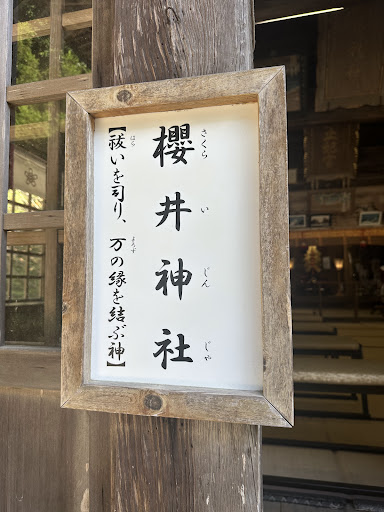 櫻井神社
さくら い じん じゃ
【祓いを司り、万の縁を結ぶ神】
はら よろず